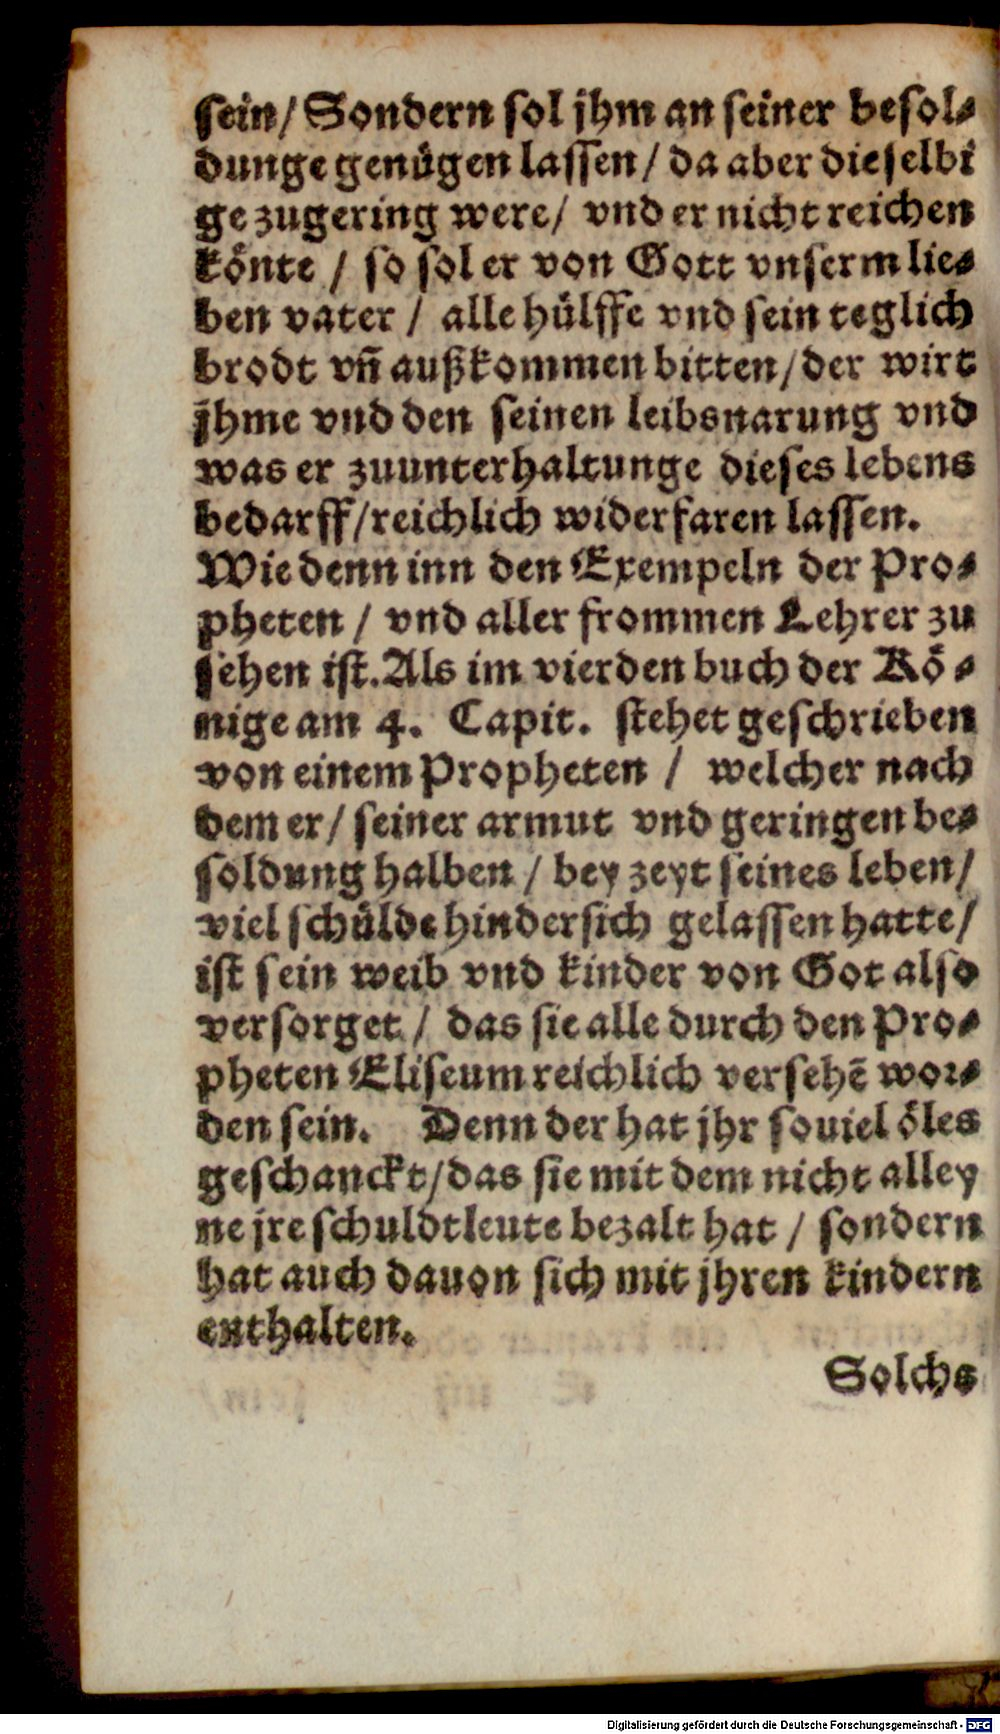 sein/ Sondern sol jhm an seiner besol⸗
dunge genügen lassen/ da aber dieselbi
ge zugering were/ vnd er nicht reichen
könte / so sol er von Gott vnserm lie⸗
ben vater / alle hülffe vnd sein teglich
brodt vñ außkommen bitten/ der wirt
jhme vnd den seinen leibsnarung vnd
was er zuunterhaltunge dieses lebens
bedarff/reichlich widerfaren lassen.
Wie denn inn den Exempeln der Pro⸗
pheten / vnd aller frommen Lehrer zu
sehen ist. Als im vierden buch der Kö⸗
nige am 4. Capit. stehet geschrieben
von einem Propheten / welcher nach
dem er/ seiner armut vnd geringen be⸗
soldung halben / bey zeyt seines leben/
viel schülde hindersich gelassen hatte/
ist sein weib vnd kinder von Got also
versorget / das sie alle durch den Pro⸗
pheten Eliseum reichlich versehē wor⸗
den sein. Denn der hat jhr souiel öles
geschanckt/das sie mit dem nicht alley
ne jre schuldtleute bezalt hat / sondern
hat auch dauon sich mit jhren kindern
enthalten.
Solchs
Digitalisierung gefördert durch die Deutsche Forschungsgemeinschaft - DFG